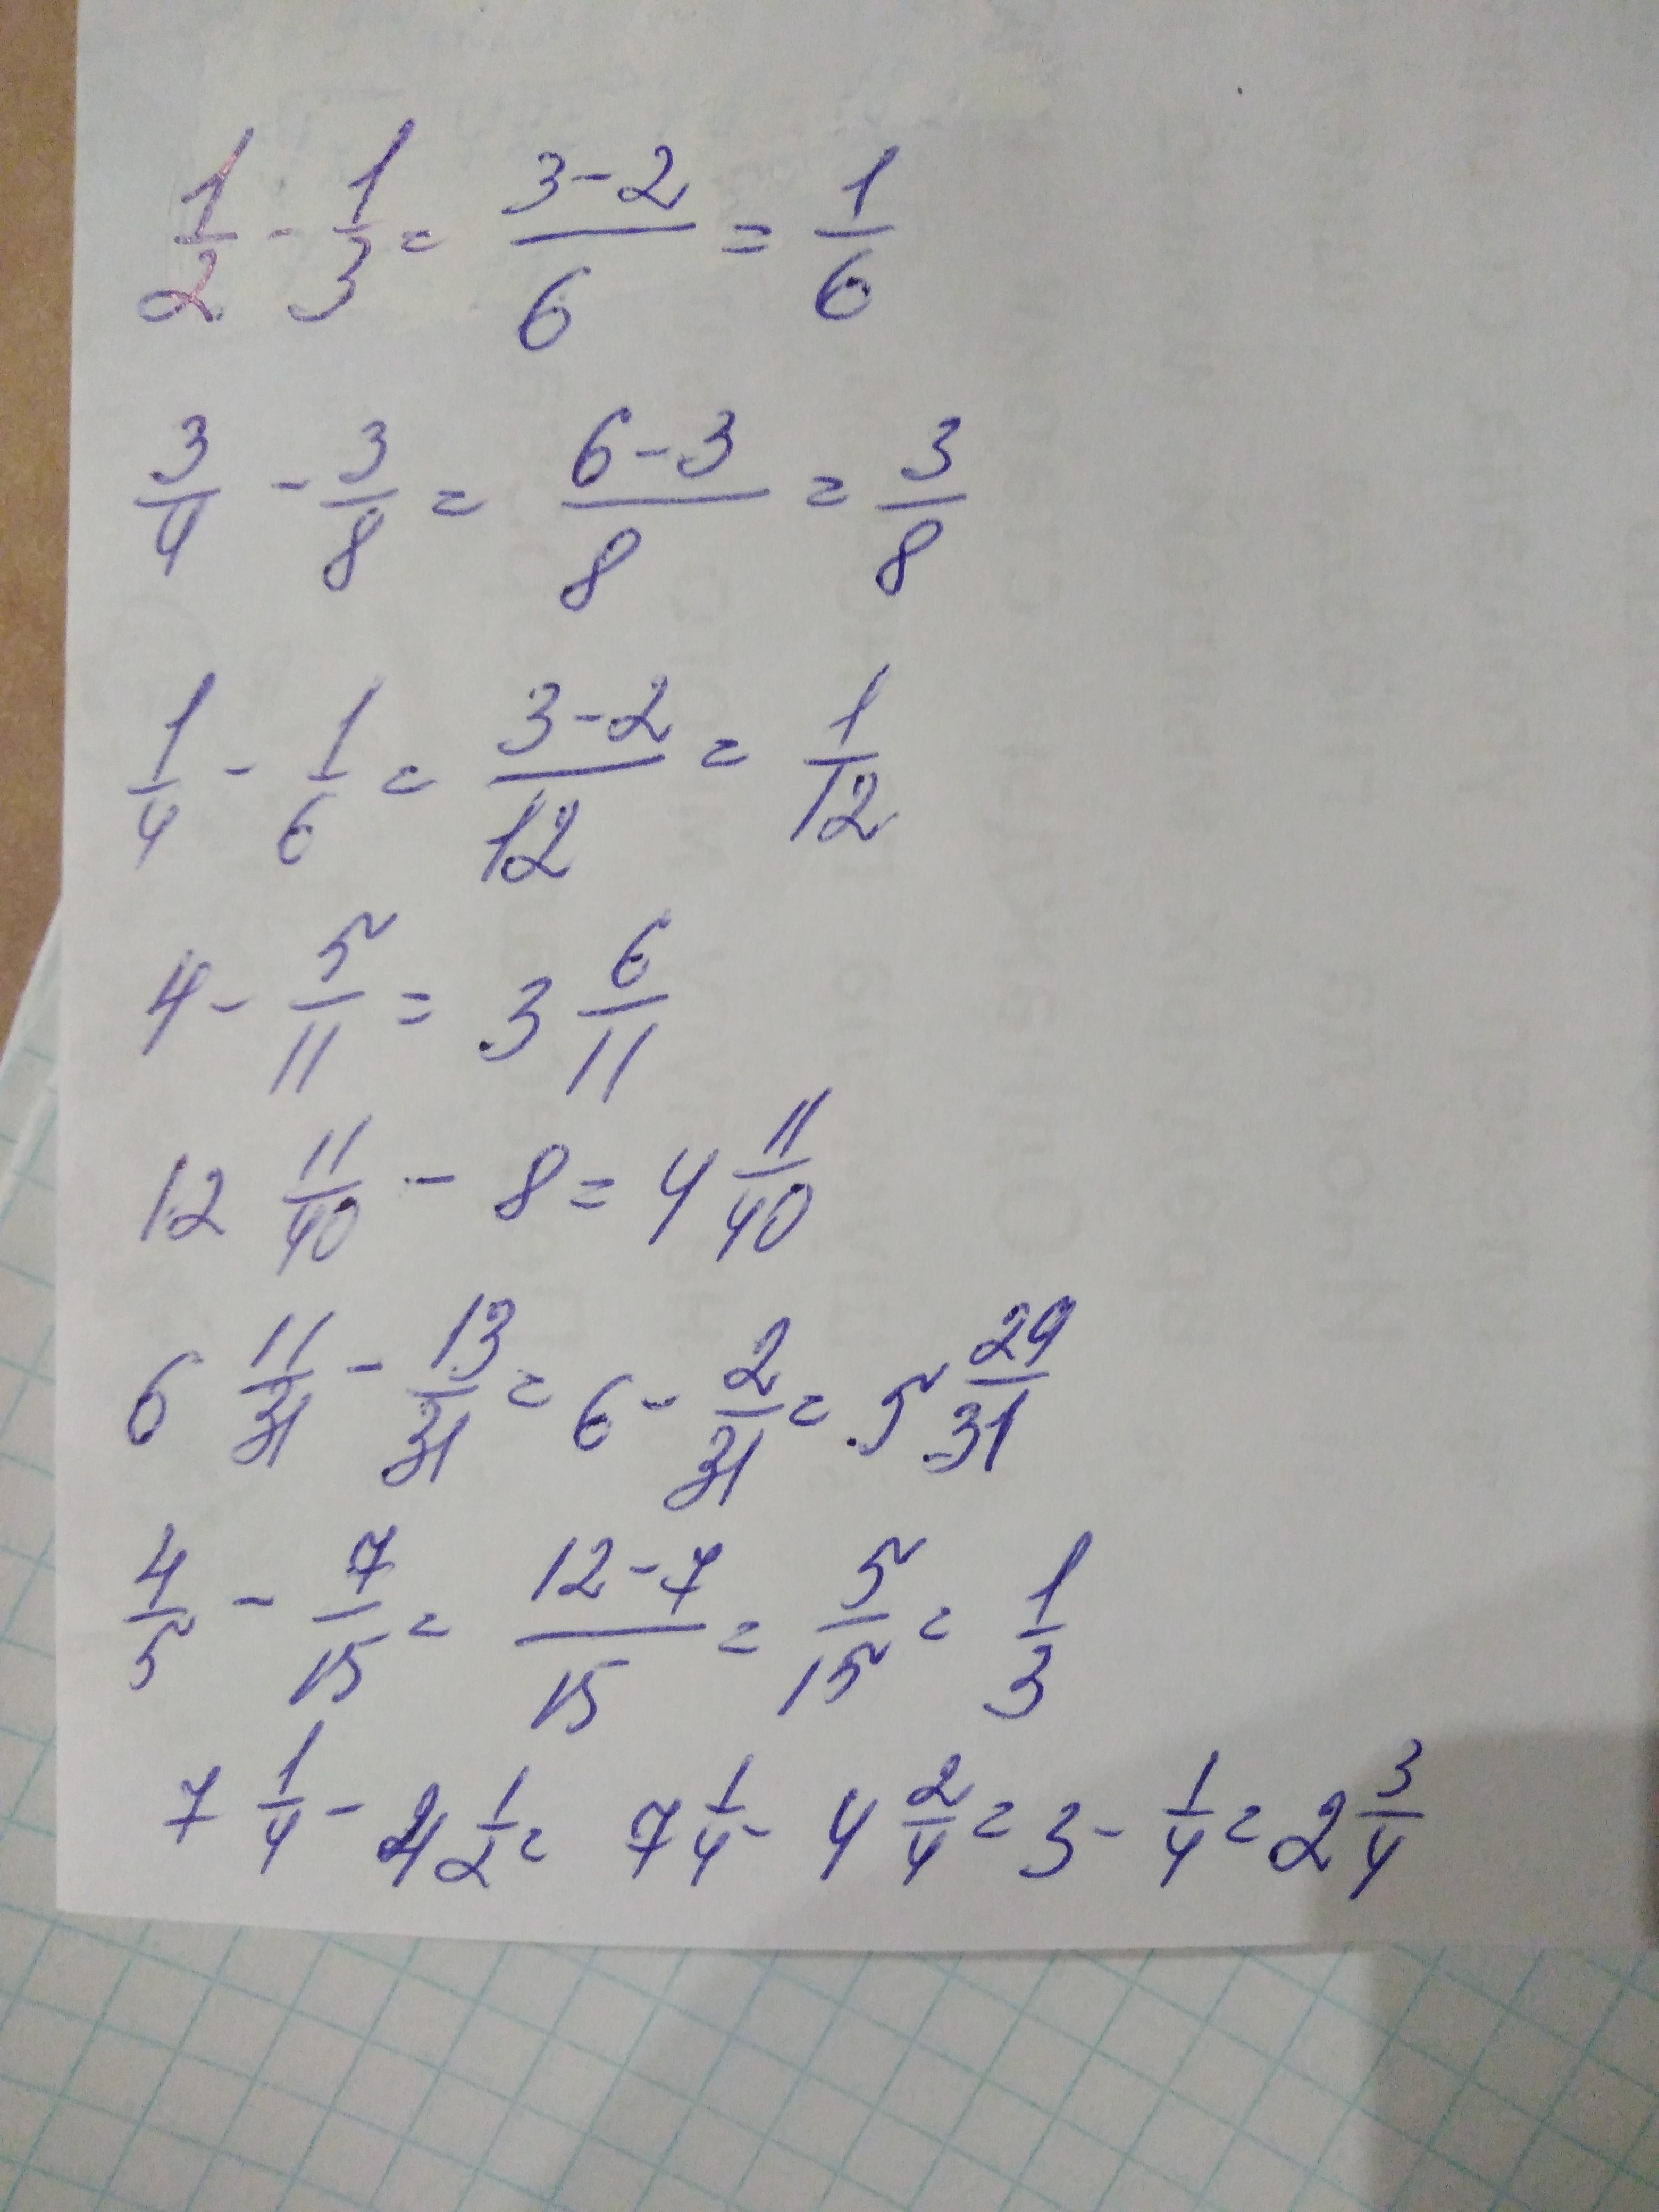 1/2 - 1/3 = (3-2)/6 = 1/6
3/4 - 3/8 = (6-3)/8 = 3/8
1/4 - 1/6 = (3-2)/12 = 1/12
4 - 5/11 = 3 6/11
12 11/40 - 8 = 4 11/40
6 11/31 - 13/31 = 6 - 2/31 = 5 29/31
4/5 - 7/15 = (12-7)/15 = 5/15 = 1/3
7 1/4 - 4 1/2 = 7 1/4 - 4 2/4 = 3 - 1/4 = 2 3/4